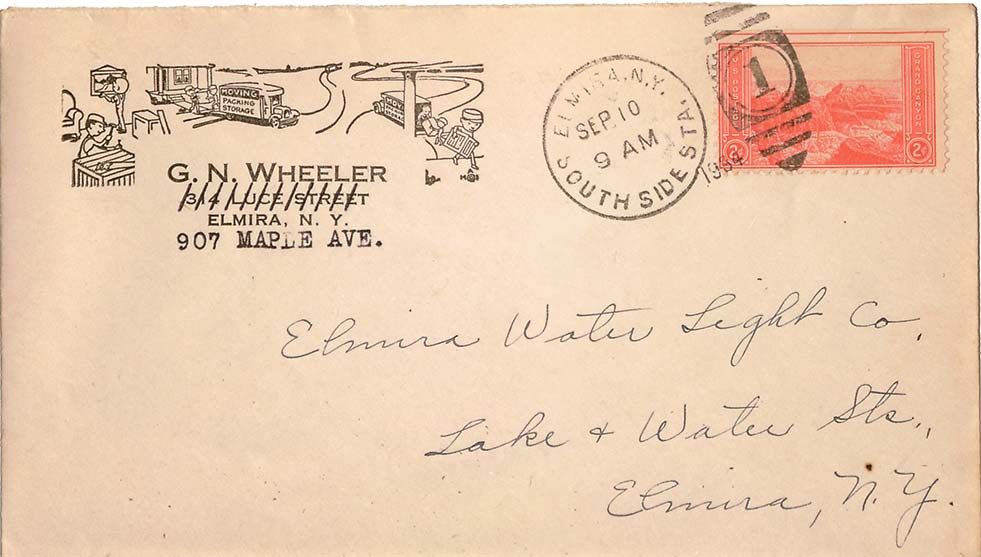 MOVING
PACKING
STORAGE
MOVING
G. N. WHEELER
314 LUCE STREET
ELMIRA, N. Y.
907 MAPLE AVE.
ELMIRA, N.Y.
SEP 10
9 AM
SOUTH SIDE STA.
1934
1
U.S. POSTAGE
GRAND CANYON
2¢ 2¢
Elmira Water Light Co.
Lake & Water Sts.,
Elmira, N.Y.